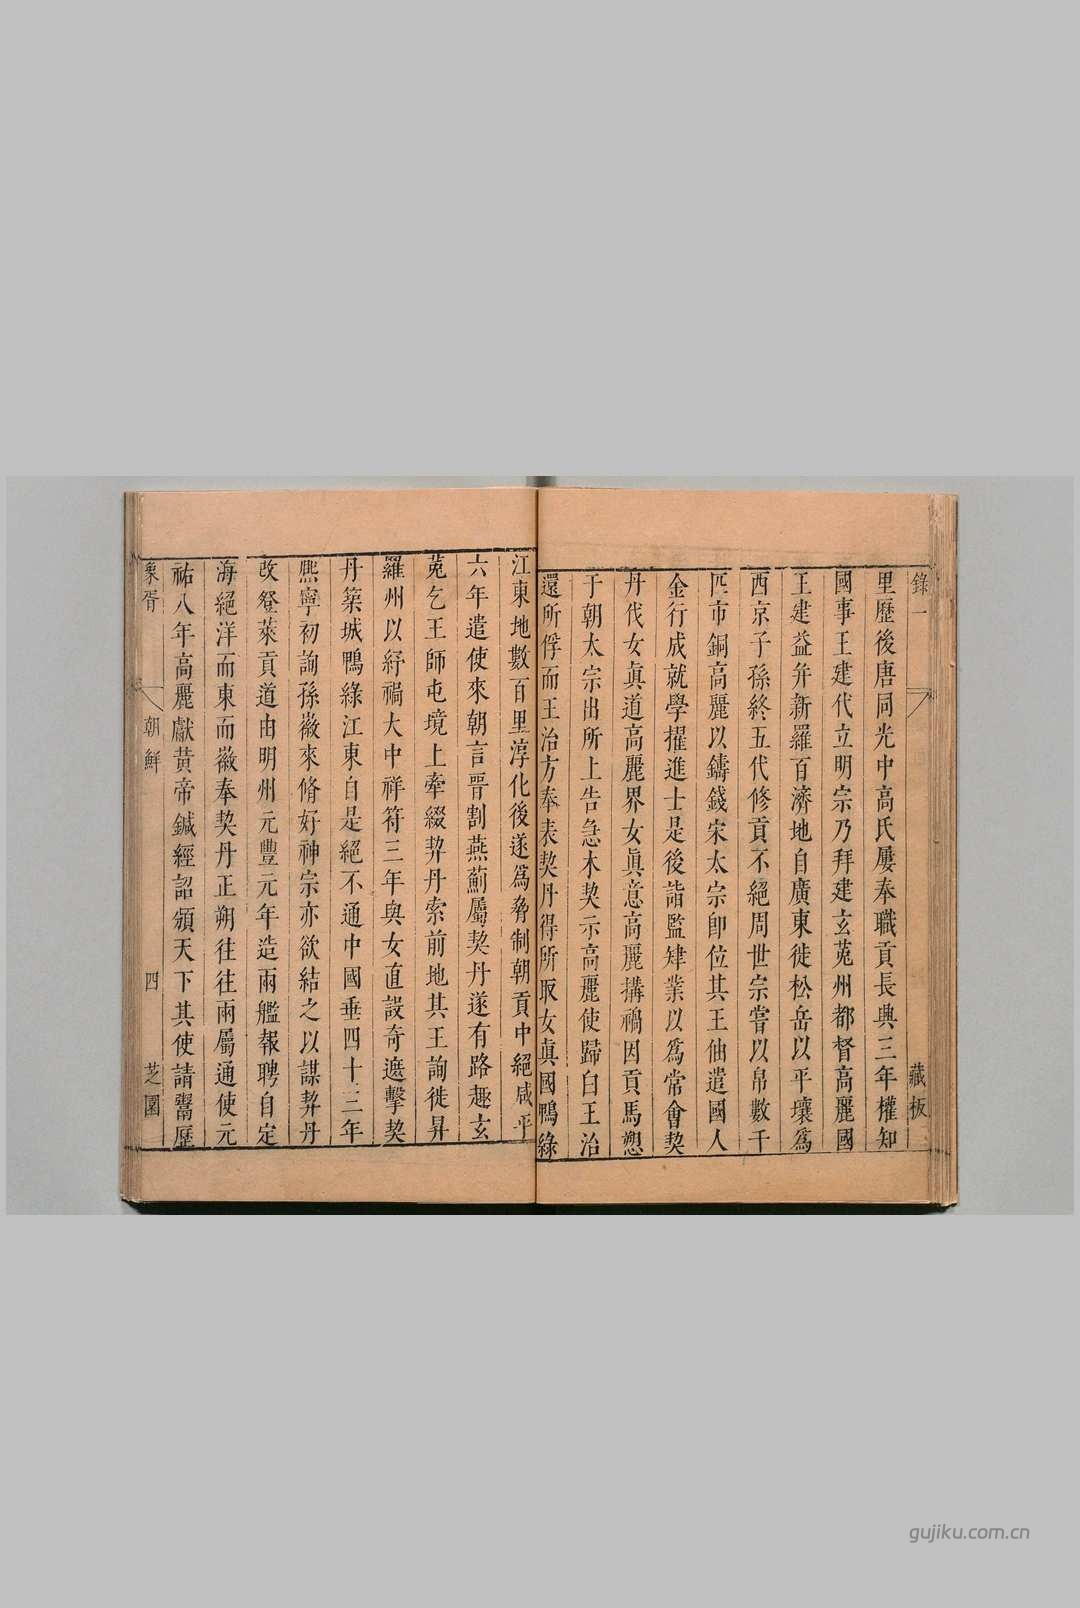 錄一 藏板
里歷後唐同光中高氏屢奉職貢長興三年權知
國事王建代立明宗乃拜建玄菟州都督高麗國
王建益并新羅百濟地自廣東徙松岳以平壤爲
西京子孫終五代修貢不絕周世宗嘗以帛數千
匹市銅高麗以鑄錢宋太宗卽位其王伷遣國人
金行成就學擢進士是後詣監肄業以爲常會契
丹伐女眞道高麗界女眞意高麗搆禍因貢馬愬
于朝太宗出所上告急木契示高麗使歸白王治
還所俘而王治方奉表契丹得所取女眞國鴨綠
江東地數百里淳化後遂爲脅制朝貢中絕咸平
六年遣使來朝言晉割燕薊屬契丹遂有路趣玄
菟乞王師屯境上牽綴契丹索前地其王詢徙昇
羅州以紓禍大中祥符三年與女直設奇邀擊契
丹築城鴨綠江東自是絕不通中國垂四十三年
熈寧初詢孫徽來脩好神宗亦欲結之以謀契丹
改登萊貢道由明州元豐元年造兩艦報聘自定
海絕洋而東而徽奉契丹正朔往往兩屬通使元
祐八年高麗獻黄帝鍼經詔頒天下其使請鬻歷
象胥 朝鮮 四 芝園
gujiku.com.cn